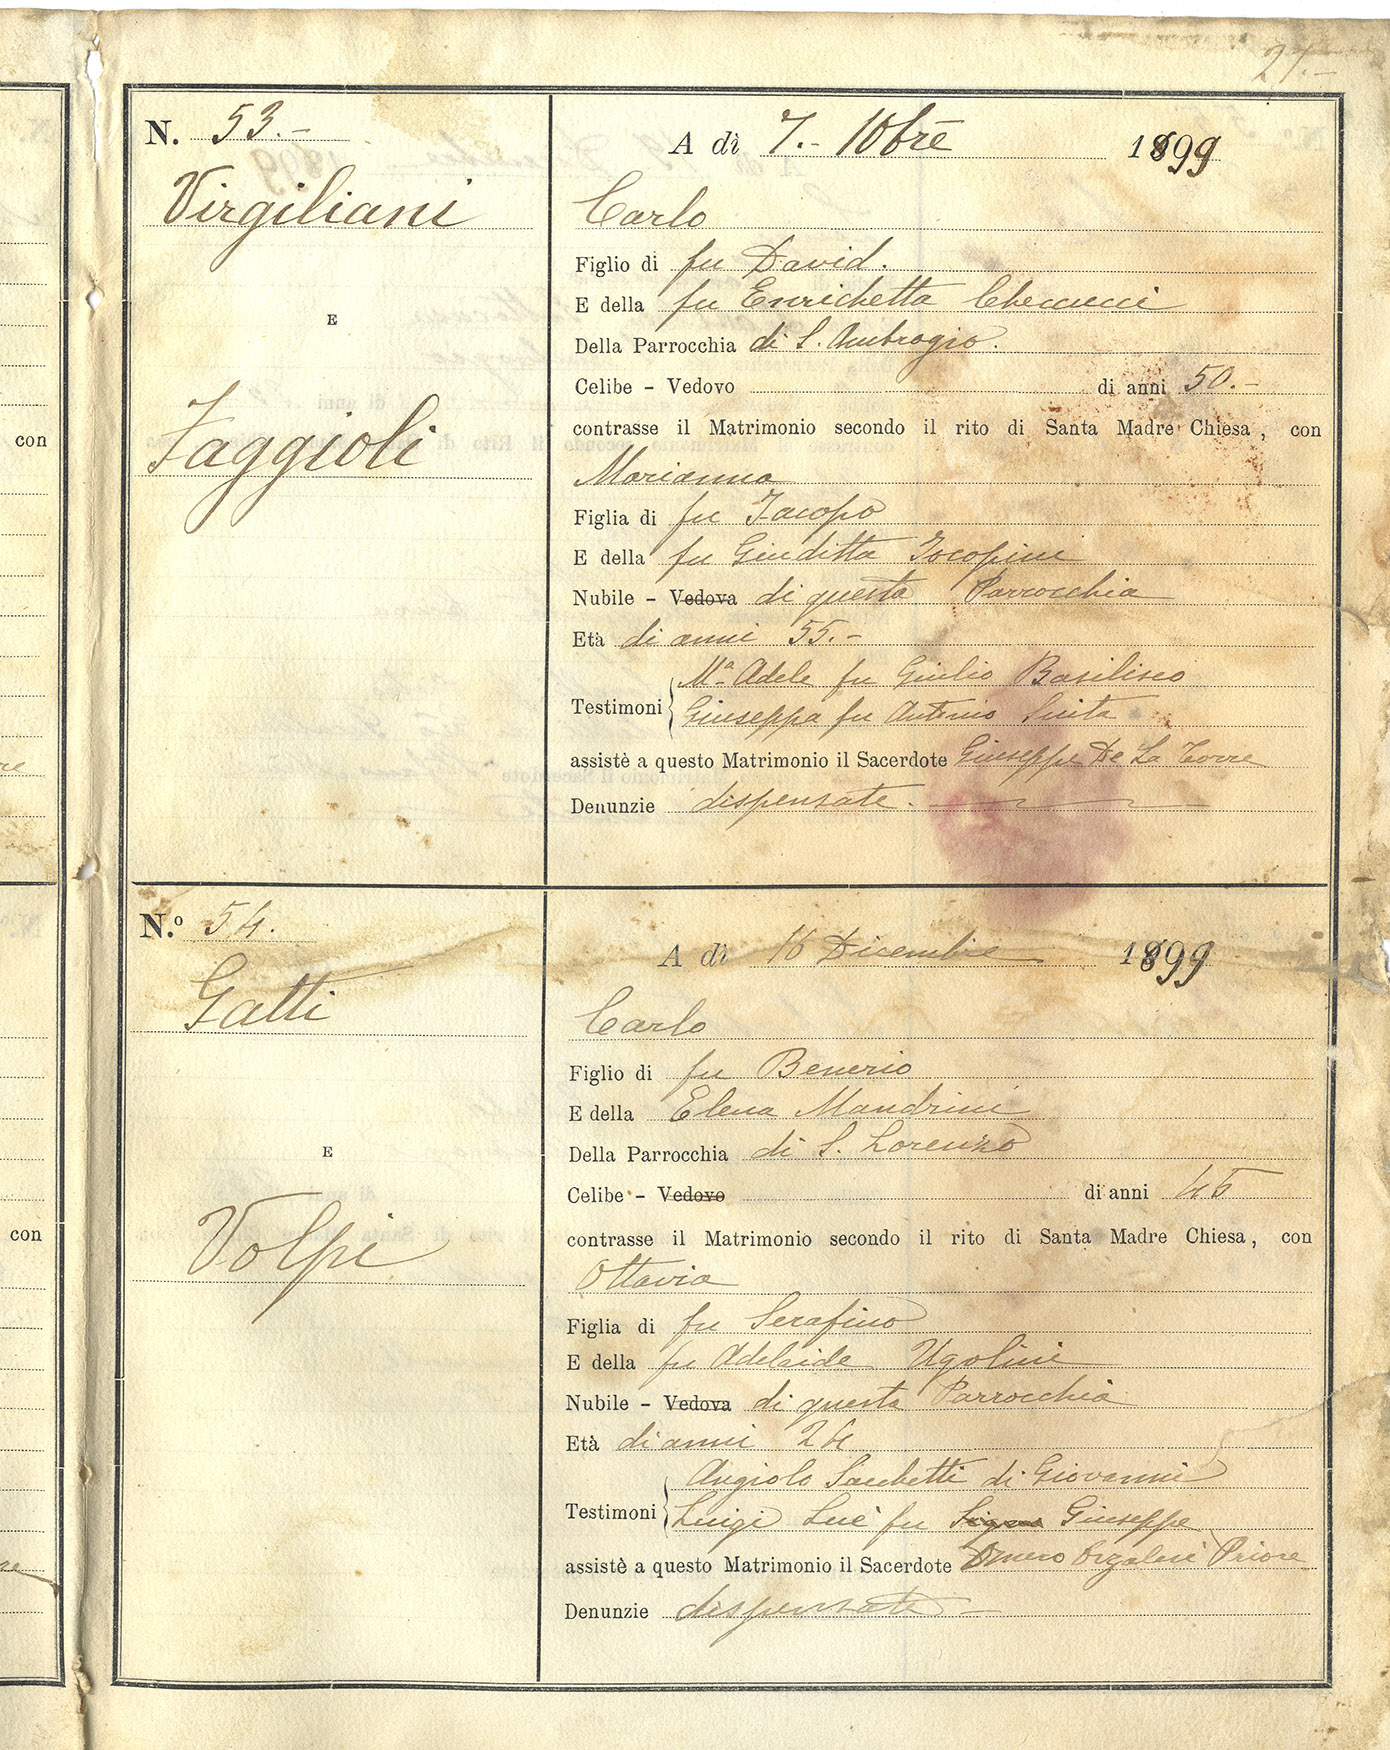 27.-
N. 53.-
Virgiliani
E
Faggioli
A dì 7.- 10bre 1899
Carlo
Figlio di fu David.
E della fu Enrichetta Checcucci
Della Parrocchia di S. Ambrogio.
Celibe - Vedovo di anni 50.-
contrasse il Matrimonio secondo il rito di Santa Madre Chiesa, con
Marianna
Figlia di fu Jacopo
E della fu Giuditta Jacopini
Nubile - Vedova di questa Parrocchia
Età di anni 55.-
Mª Adele fu Giulio Basilisco
Testimoni
Giuseppa fu Antonio
assistè a questo Matrimonio il Sacerdote Giuseppe De La Torre
Denunzie dispensate.
N.º 54.
Gatti
E
Volpi
A dì 16 Dicembre 1899
Carlo
Figlio di fu Benerio
E della Elena Mandrini
Della Parrocchia di S. Lorenzo
Celibe - Vedovo di anni 45
contrasse il Matrimonio secondo il rito di Santa Madre Chiesa, con
Ottavia
Figlia di fu Serafino
E della fu Adelaide Ugolini
Nubile - Vedova di questa Parrocchia
Età di anni 24
Angiolo Sacchetti di Giovanni
Testimoni
Luigi fu Giuseppe
assistè a questo Matrimonio il Sacerdote Omero Orzalesi Priore
Denunzie dispensate -
con
con